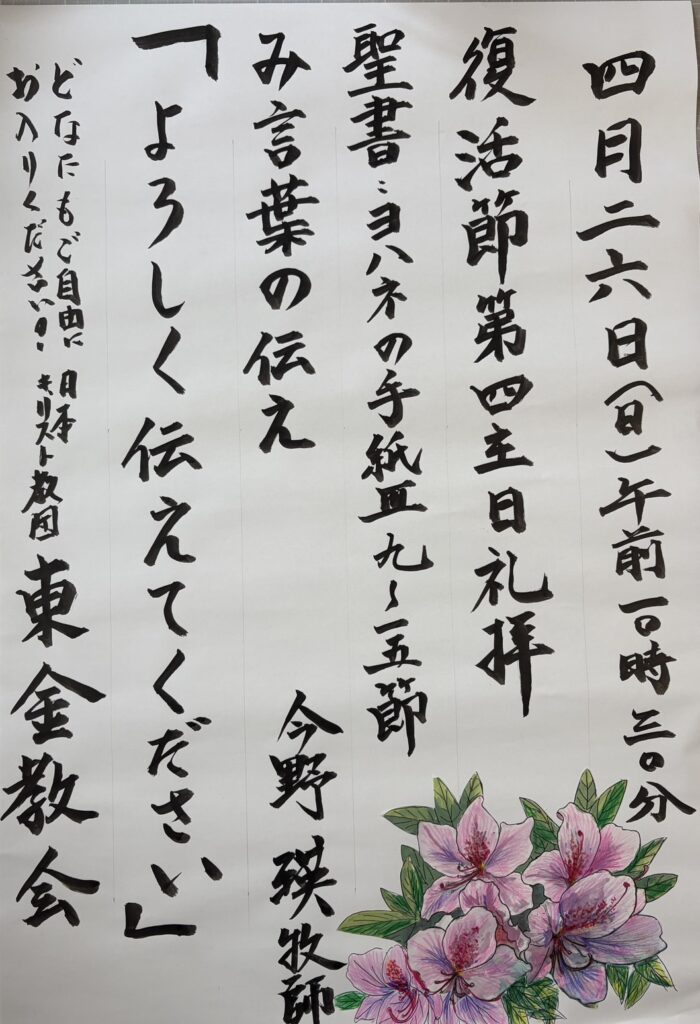 四月二六日(日)午前一〇時三〇分
復活節第四主日礼拝
聖書:ヨハネの手紙Ⅲ九〜一五節
み言葉の伝え
今野 瑛牧師
「よろしく伝えてください」
どなたもご自由に
お入りください!
日本
キリスト教団
東金教会